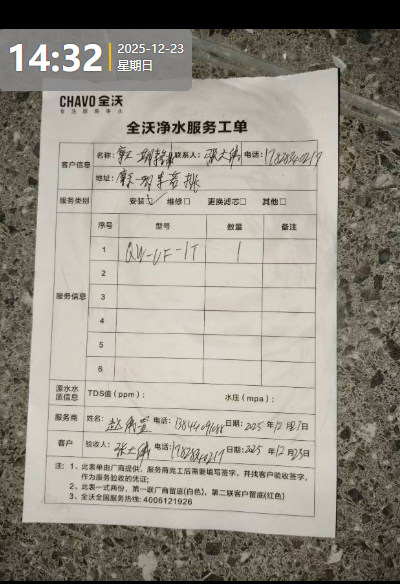 14:32
2025-12-23
星期日
CHAVO 全沃
全沃净水服务工单
客户信息 名称： 联系人：张大伟 电话：
地址：
服务类别 安装☑ 维修□ 更换滤芯□ 其他□
服务信息 序号 型号 数量 备注
1 QW-UF-1T 1
2
3
4
5
6
源水水质信息 TDS值（ppm）： 水压（mpa）：
服务商 姓名：赵 电话： 日期：2025年12月23日
客户 验收人：张大伟 电话： 日期：2025年12月23日
注：1、此表单由厂商提供，服务商完工后需要填写签字，并找客户验收签字，
作为服务验收的凭证;
2、此表一式两份，第一联厂商留底(白色)，第二联客户留底(红色)
3、全沃全国服务热线: 4006121926